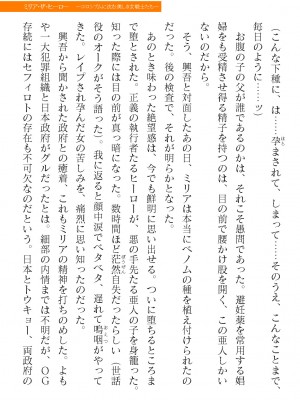 （こんな下種に、は……孕まされて、しまって……そのうえ、こんなことまで、
毎日のように……ッ）
　お腹の子の父親が誰であるのかは、それこそ愚問であった。避妊薬を常用する娼
婦をも受精させ得る精子を持つのは、目の前で腰かけ股を開く、この亜人しかい
ないのだから。
　そう、興吾と対面したあの日、ミリアは本当にベノムの種を植え付けられたの
だった。後の検査で、それが明らかとなった。
　あのとき味わった絶望感は、今でも鮮明に思い出せる。ついに堕ちるところま
で堕とされた。正義の執行者たるヒーローが、悪の手先たる亜人の子を身籠った。
知った際には目の前が真っ暗になった。数時間ほど茫然自失だったらしい（世話
役のオークがそう語った）。我に返ると顔中涙でベタベタ、遅れて嗚咽がやって
きた。レイプされ孕んだ女の苦しみを、痛烈に思い知ったのだった。
　興吾から聞かされた政府との癒着、これもミリアの精神を打ちのめした。よも
や一大犯罪組織と日本政府がグルだったとは。細部の内情までは不明だが、ＯＧ
存続にはセフィロトの存在も不可欠なのだという。日本とトウキョー、両政府の